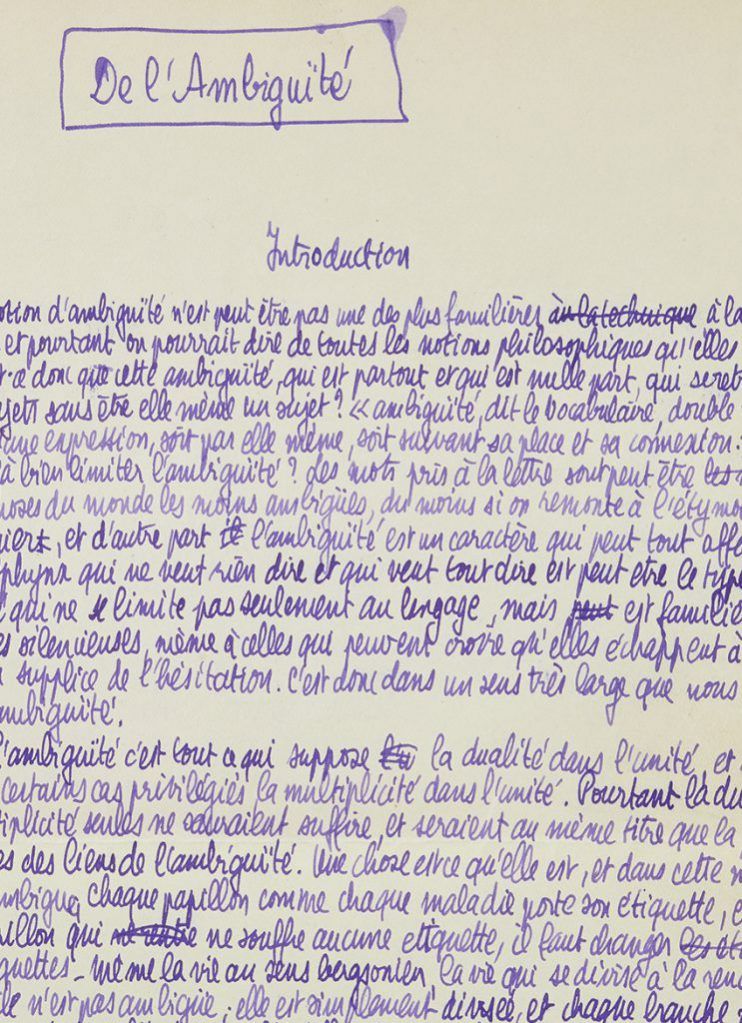 De l'Ambiguïté
Introduction
otion d'ambiguïté n'est peut être pas une des plus familières à la technique à la
et pourtant on pourrait dire de toutes les notions philosophiques qu'elles
t-ce donc que cette ambiguïté, qui est partout et qui est nulle part, qui se ret
jets sans être elle même un sujet ? « ambiguïté, dit le Vocabulaire, double
d'une expression, soit par elle même, soit suivant sa place et sa connexion :
à bien limiter l'ambiguïté ? Les mots pris à la lettre sont peut être les
hoses du monde les moins ambigües, du moins si on remonte à l'étymo
et d'autre part il l'ambiguïté est un caractère qui peut tout affe
sphynx qui ne veut rien dire et qui veut tout dire est peut etre le type
qui ne se limite pas seulement au langage, mais peut est familie
es silencieuses, même à celles qui peuvent croire qu'elles échappent à
supplice de l'hésitation. C'est donc dans un sens très large que nous
ambiguïté.
l'ambiguïté c'est tout ce qui suppose la dualité dans l'unité et
certains cas privilégiés la multiplicité dans l'unité. Pourtant la du
tiplicité seules ne sauraient suffire, et seraient au même titre que la
es des liens de l'ambiguïté. Une chose est ce qu'elle est, et dans cette
ambigu, chaque papillon comme chaque maladie porte son étiquette, e
pillon qui ne rentre ne souffre aucune etiquette, il faut changer les éti
quettes - même la vie au sens bergsonien, la vie qui se divise à la ren
le n'est pas ambigüe ; elle est simplement divisée, et chaque branche